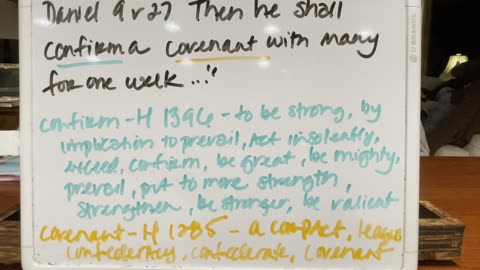 Daniel 9 v 27 Then he shall
confirm a covenant with many
for one week..."
confirm - H 1396 - to be strong, by
implication to prevail, act insolently,
exceed, confirm, be great, be mighty,
prevail, put to more strength,
strengthen, be stronger, be valient
covenant - H 1285 - a compact, league
confederacy, confederate, covenant
U BRANDS